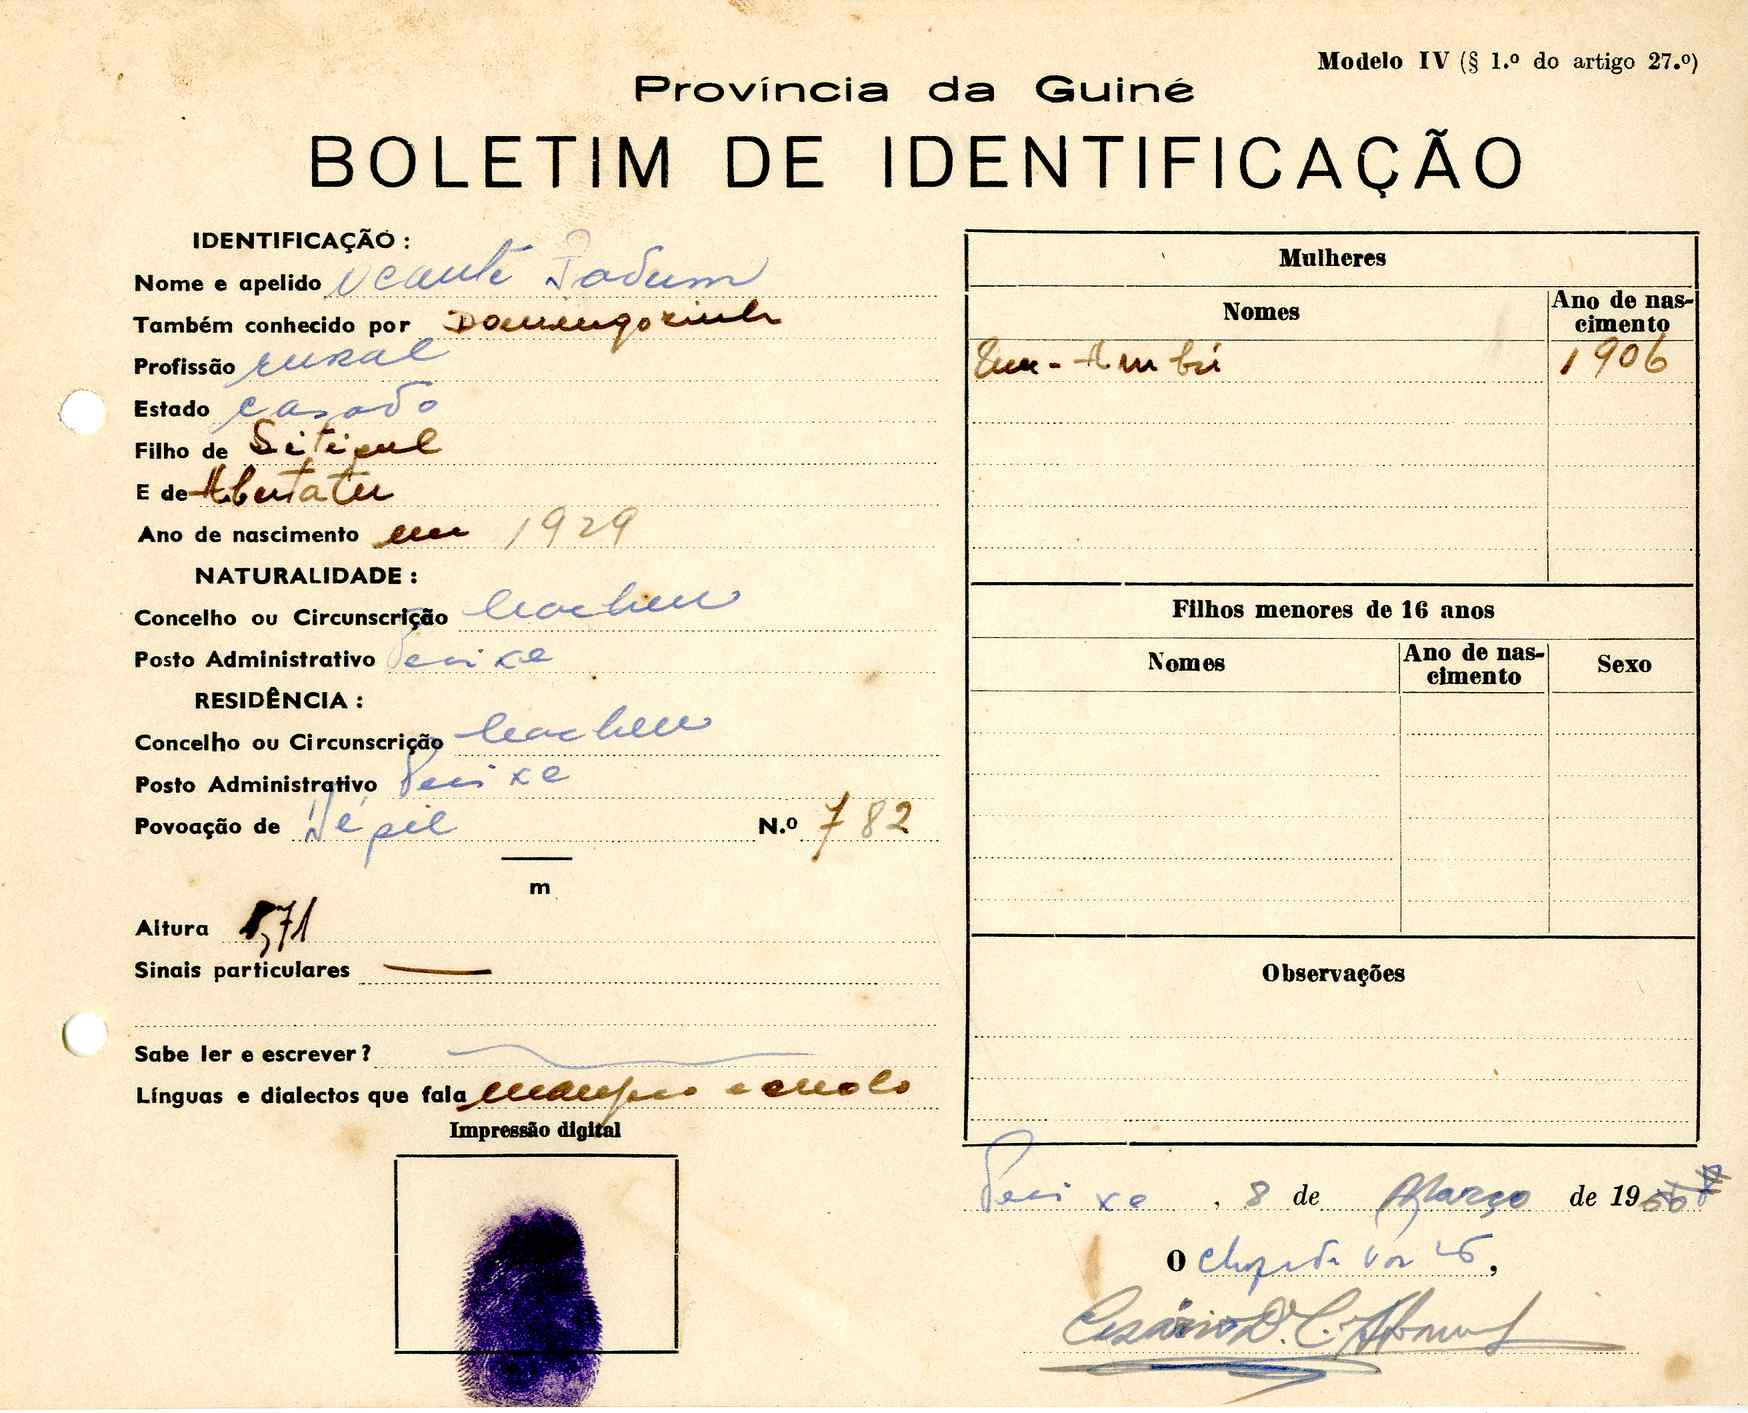 Modelo IV (§ 1.º do artigo 27.º)
Província da Guiné
BOLETIM DE IDENTIFICAÇÃO
IDENTIFICAÇÃO :
Nome e apelido Ucante
Também conhecido por
Profissão rural
Estado casado
Filho de
E de
Ano de nascimento em 1929
NATURALIDADE :
Concelho ou Circunscrição Cacheu
Posto Administrativo Pecixe
RESIDÊNCIA :
Concelho ou Circunscrição Cacheu
Posto Administrativo Pecixe
Povoação de N.º 782
m
Altura 1,71
Sinais particulares
Sabe ler e escrever ?
Línguas e dialectos que fala e crioulo
Impressão digital
Mulheres
Nomes Ano de nas-
cimento
1906
Filhos menores de 16 anos
Nomes Ano de nas-
cimento Sexo
Observações
Pecixe , 8 de Março de 19
O Chefe de Posto ,
Cesário D. C.